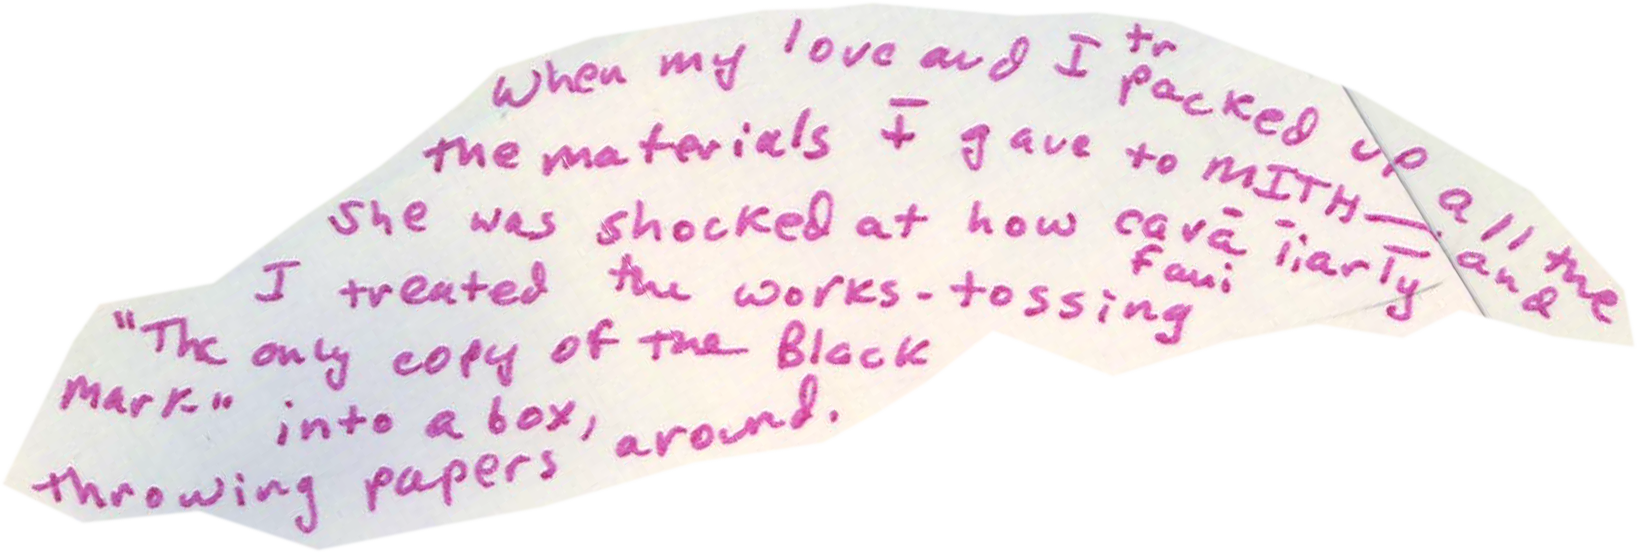 When my love and I tr
packed up all the
the materials I gave to MITH—. and
She was shocked at how cavā liarly
fami
I treated the works - tossing
"The only copy of the Black
Mark" into a box,
throwing papers around.